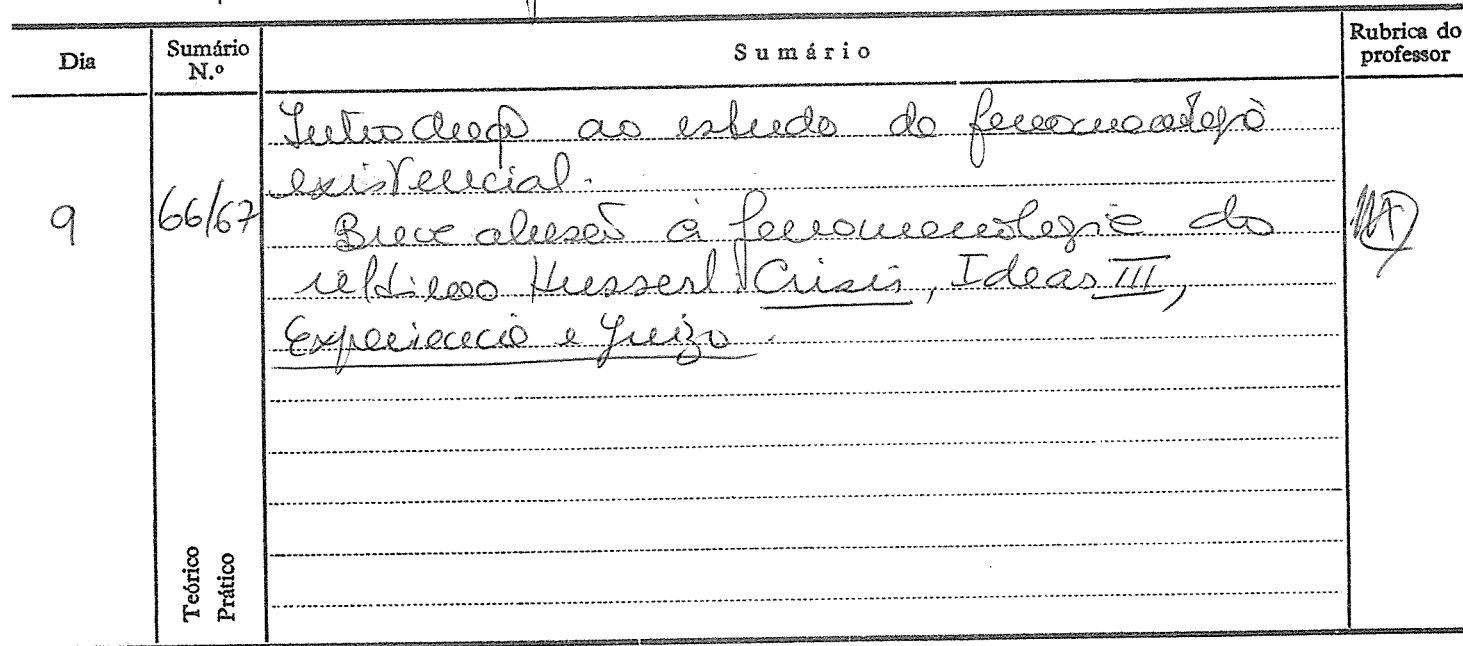 Dia
Sumário N.º
Sumário
Rubrica do professor
9
66/67
Introdução ao estudo da fenomenologia
existencial.
Breve alusão à fenomenologia do
último Husserl: Crisis, Ideas III,
Experiência e Juízo.
Teórico
Prático